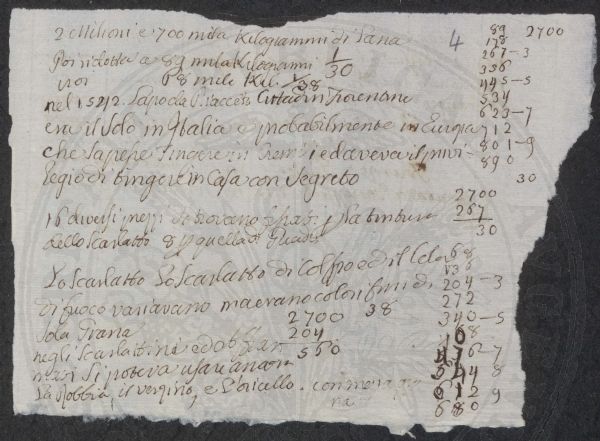 2 Milioni e 700 mila Kilogrammi di Lana
4
89 2700
178
Poi ridotta a 89 mila Kilogrammi 1/30
267-3
356
poi 68 mila Kil. 1/38
445-5
nel 1512. Lapo da Cittadin Fiorentino
534
623-7
era il solo in Italia e probabilmente in Europa
712
che sapesse tingere in e ed aveva il privi-
801-9
890
legio di tingere in Casa con Segreto
30
2700
16 diversi si trovano la tintura
267
30
dello Scarlatto 8 quella di
Lo Scarlatto Lo Scarlatto di Colpo ed il Color
68
136
di fuoco variavano ma erano colori fini di
204-3
272
sola Grana
2700 38
340-5
204
negli Scarlattini ed
560
476-7
si poteva usare ancora
544 8
la Robbia, il verzino, e l'oricello. con mezza gra
612 9
na
680